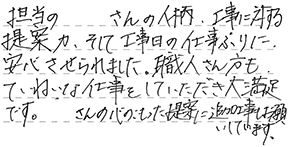 担当の　　　さんの人柄、工事に対する
提案力、そして工事日の仕事ぶりに、
安心させられました。職人さん方も
ていねいな仕事をしていただき大満足
です。　　さんの心のこもった提案に追加工事もお願
いしています。